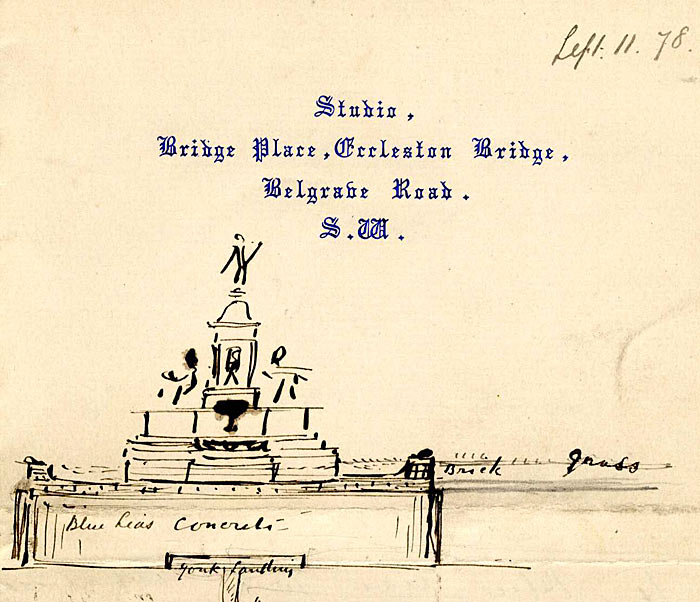 Sept. 11. 78.
Studio,
Bridge Place, Eccleston Bridge,
Belgrave Road.
S.W.
Brick grass
Blue Lias Concrete
York Landing